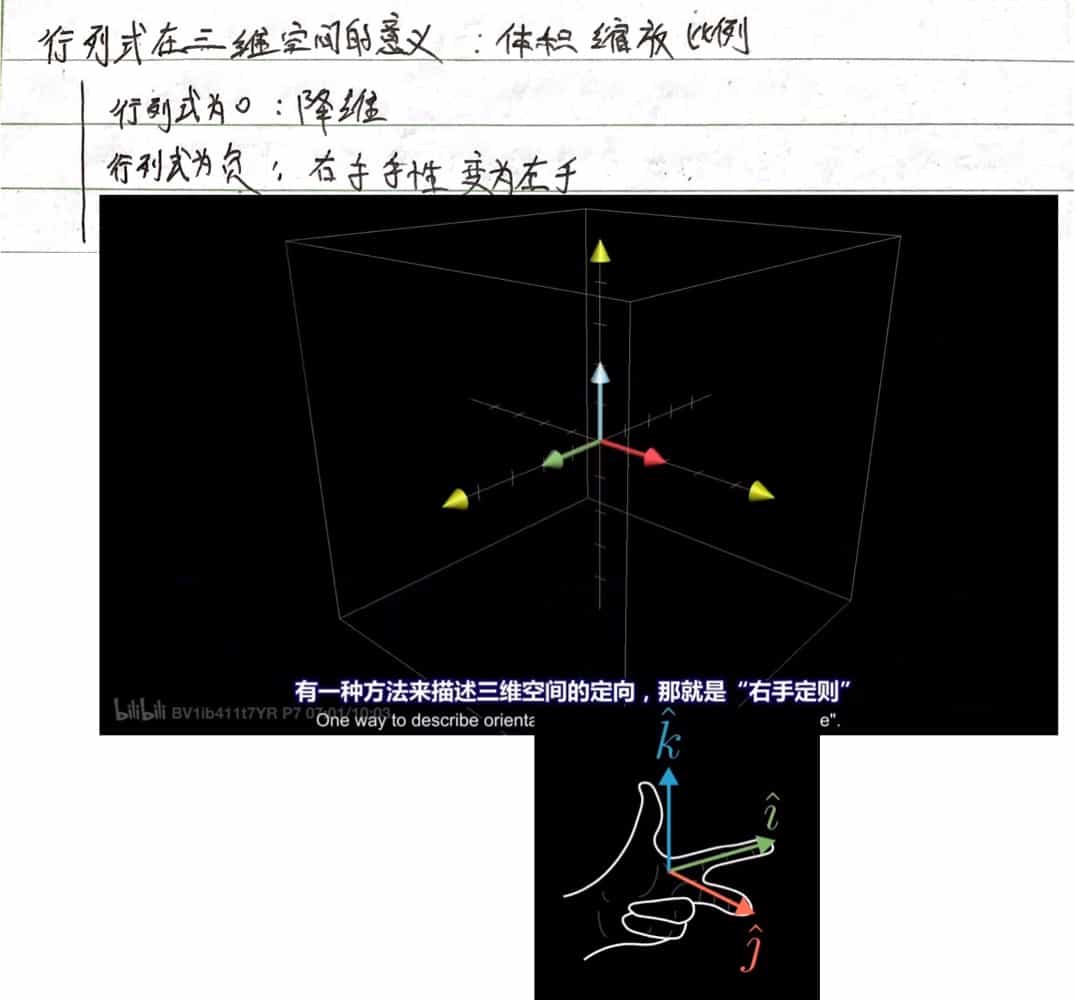 行列式在三维空间的意义：体积缩放比例
行列式为0：降维
行列式为负：右手手性变为左手
有一种方法来描述三维空间的定向，那就是“右手定则”
bilibili BV1ib411t7YR P7 07:01/10:03
One way to describe orienta
e".
k̂
î
ĵ